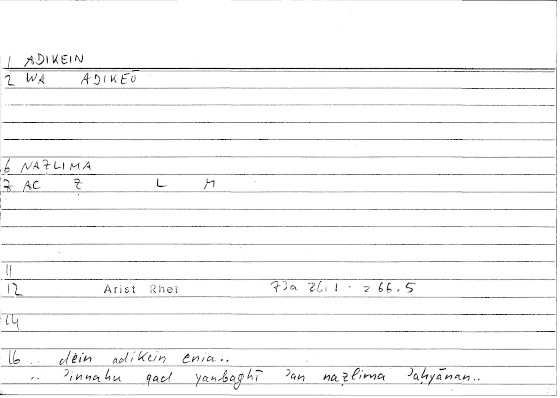 1 ADIKEIN
2 WA ADIKEŌ
6 NAẒLIMA
7 AC Ẓ L M
11
12 Arist Rhet 73a 26.1 = 66.5
14
16 .. dein adikein enia..
.. ʾinnahu qad yanbaghī ʾan naẓlima ʾaḥyānan..